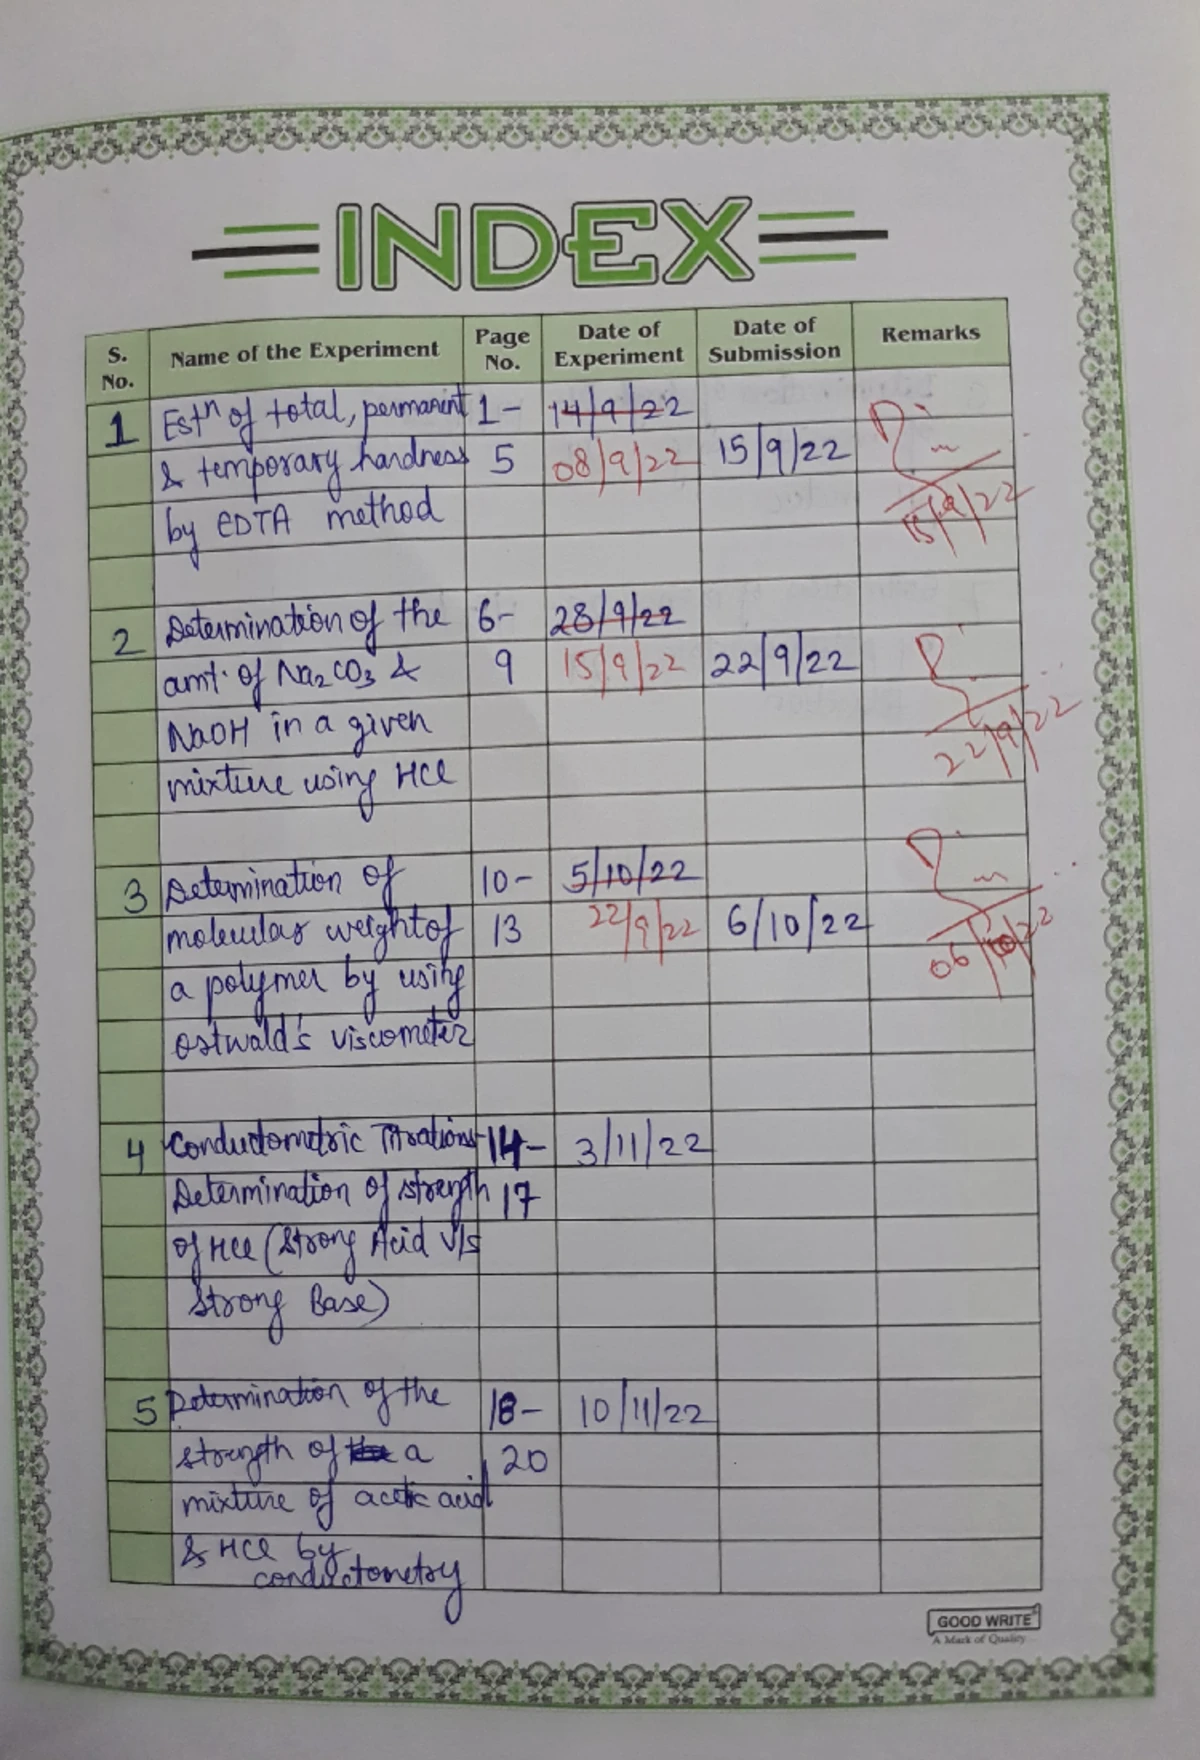 INDEX
S. No. Name of the Experiment Page No. Date of Experiment Date of Submission Remarks
1 Estn of total, permanent 1- 14/9/22
& temporary hardness 5 08/9/22 15/9/22
by EDTA method 15/9/22
2 Determination of the 6- 28/9/22
amt. of Na2CO3 & 9 15/9/22 22/9/22
NaOH in a given 22/9/22
mixture using HCl
3 Determination of 10- 5/10/22
molecular weight of 13 22/9/22 6/10/22
a polymer by using 06/10/22
Ostwald's viscometer
4 Conductometric Titrations- 14- 3/11/22
Determination of strength 17
of HCl (Strong Acid v/s
Strong Base)
5 Determination of the 18- 10/11/22
strength of the a 20
mixture of acetic acid
& HCl by
conductometry
GOOD WRITE
A Mark of Quality